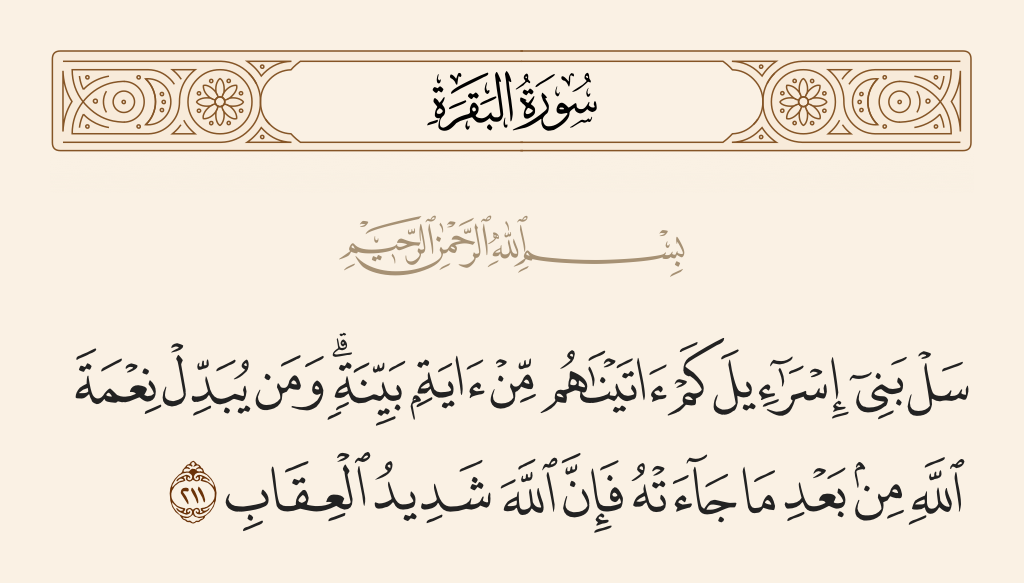 سُورَةُ الْبَقَرَةِ
بِسْمِ ٱللَّهِ ٱلرَّحْمَٰنِ ٱلرَّحِيمِ
سَلْ بَنِىٓ إِسْرَٰٓءِيلَ كَمْ ءَاتَيْنَٰهُم مِّنْ ءَايَةٍۭ بَيِّنَةٍ ۗ وَمَن يُبَدِّلْ نِعْمَةَ
ٱللَّهِ مِنۢ بَعْدِ مَا جَآءَتْهُ فَإِنَّ ٱللَّهَ شَدِيدُ ٱلْعِقَابِ ٢١١